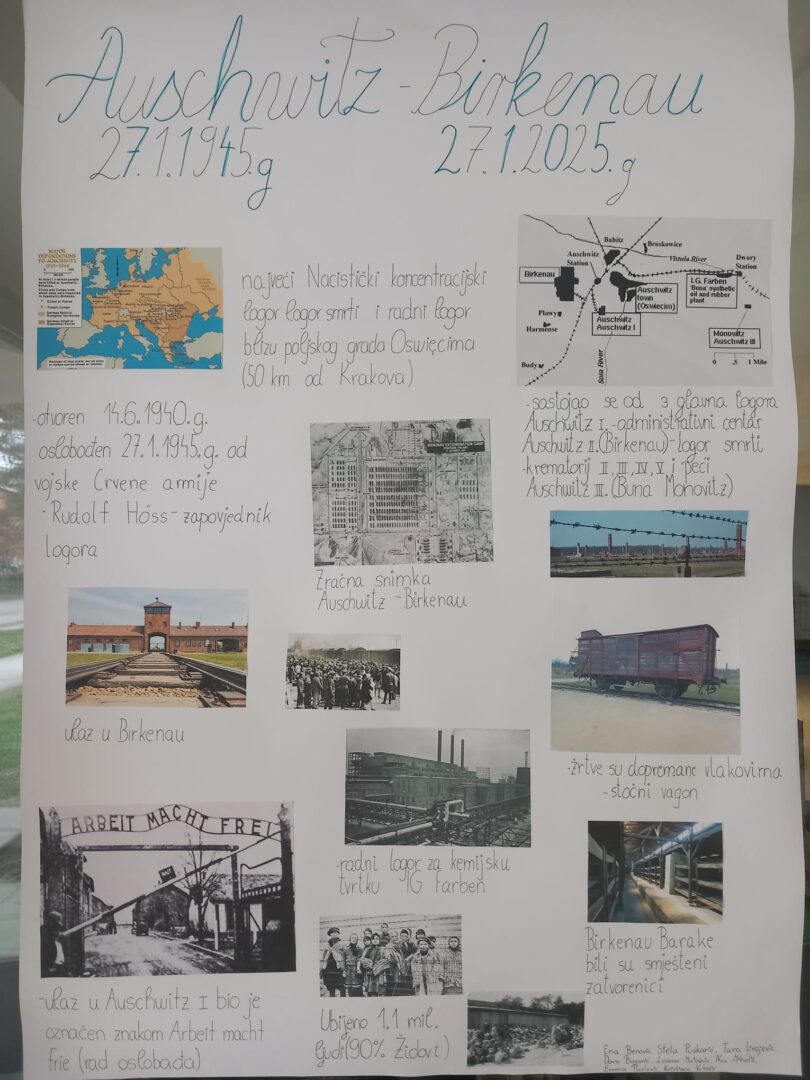 Auschwitz - Birkenau
27.1.1945.g
27.1.2025.g
MAJOR
DEPORTATIONS
TO AUSCHWITZ
1942-1944
najveći Nacistički koncentracijski
logor logor smrti i radni logor
blizu poljskog grada Oswięcima
(50 km od Krakova)
Babitz
Bruskowice
Auschwitz
Station
Vistula River
Dwory
Station
Birkenau
I.G. Farben
"Buna" synthetic
oil and rubber
plant
Auschwitz
town
(Oswiecim)
Plawy
Harmense
Auschwitz
Auschwitz I
Monowitz
Auschwitz III
Budy
Sola River
0 .5 1 Mile
-otvoren 14.6.1940.g.
oslobođen 27.1.1945.g. od
vojske Crvene armije
- Rudolf Höss-zapovjednik
logora
-sastojao se od 3 glavna logora
Auschwitz I.-administrativni centar
Auschwitz II.(Birkenau)-logor smrti
-krematorij II, III, IV, V i peći
Auschwitz III.(Buna Monovitz)
Zračna snimka
Auschwitz -Birkenau
ulaz u Birkenau
-žrtve su dopremane vlakovima
-stočni vagon
ARBEIT MACHT FREI
HALT
-radni logor za kemijsku
tvrtku IG Farben
Birkenau Barake
bili su smješteni
zatvorenici
-ulaz u Auschwitz I bio je
označen znakom Arbeit macht
frie (rad oslobađa)
Ubijeno 1.1 mil.
ljudi(90% Židovi)
Ena Stela Tara